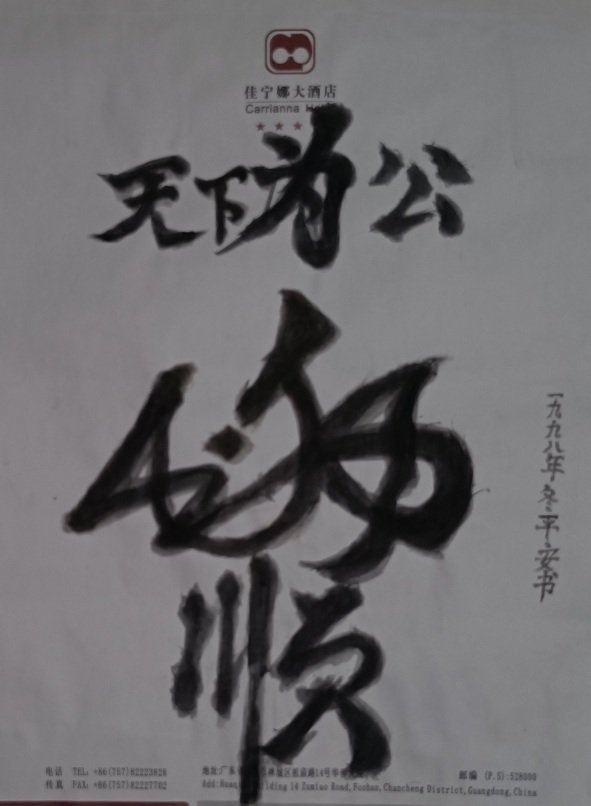 佳宁娜大酒店
Carrianna
天下为公
顺
一九九八年冬平安书
电话 TEL: +86(757)82223828
传真 FAX: +86(757)82227702
地址:广东 禅城区祖庙路14号华
Building 14 Zumiao Road,Foshan, Chancheng District,Guangdong,China
邮编 (P.S):528000